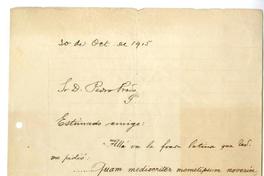 30 de Oct. de 1915
Sr. D. Pedro Prado
P.
Estimado amigo:
Allá va la frase latina que Ud.
me pidió:
......Quam mediocriter memetipsum noverim